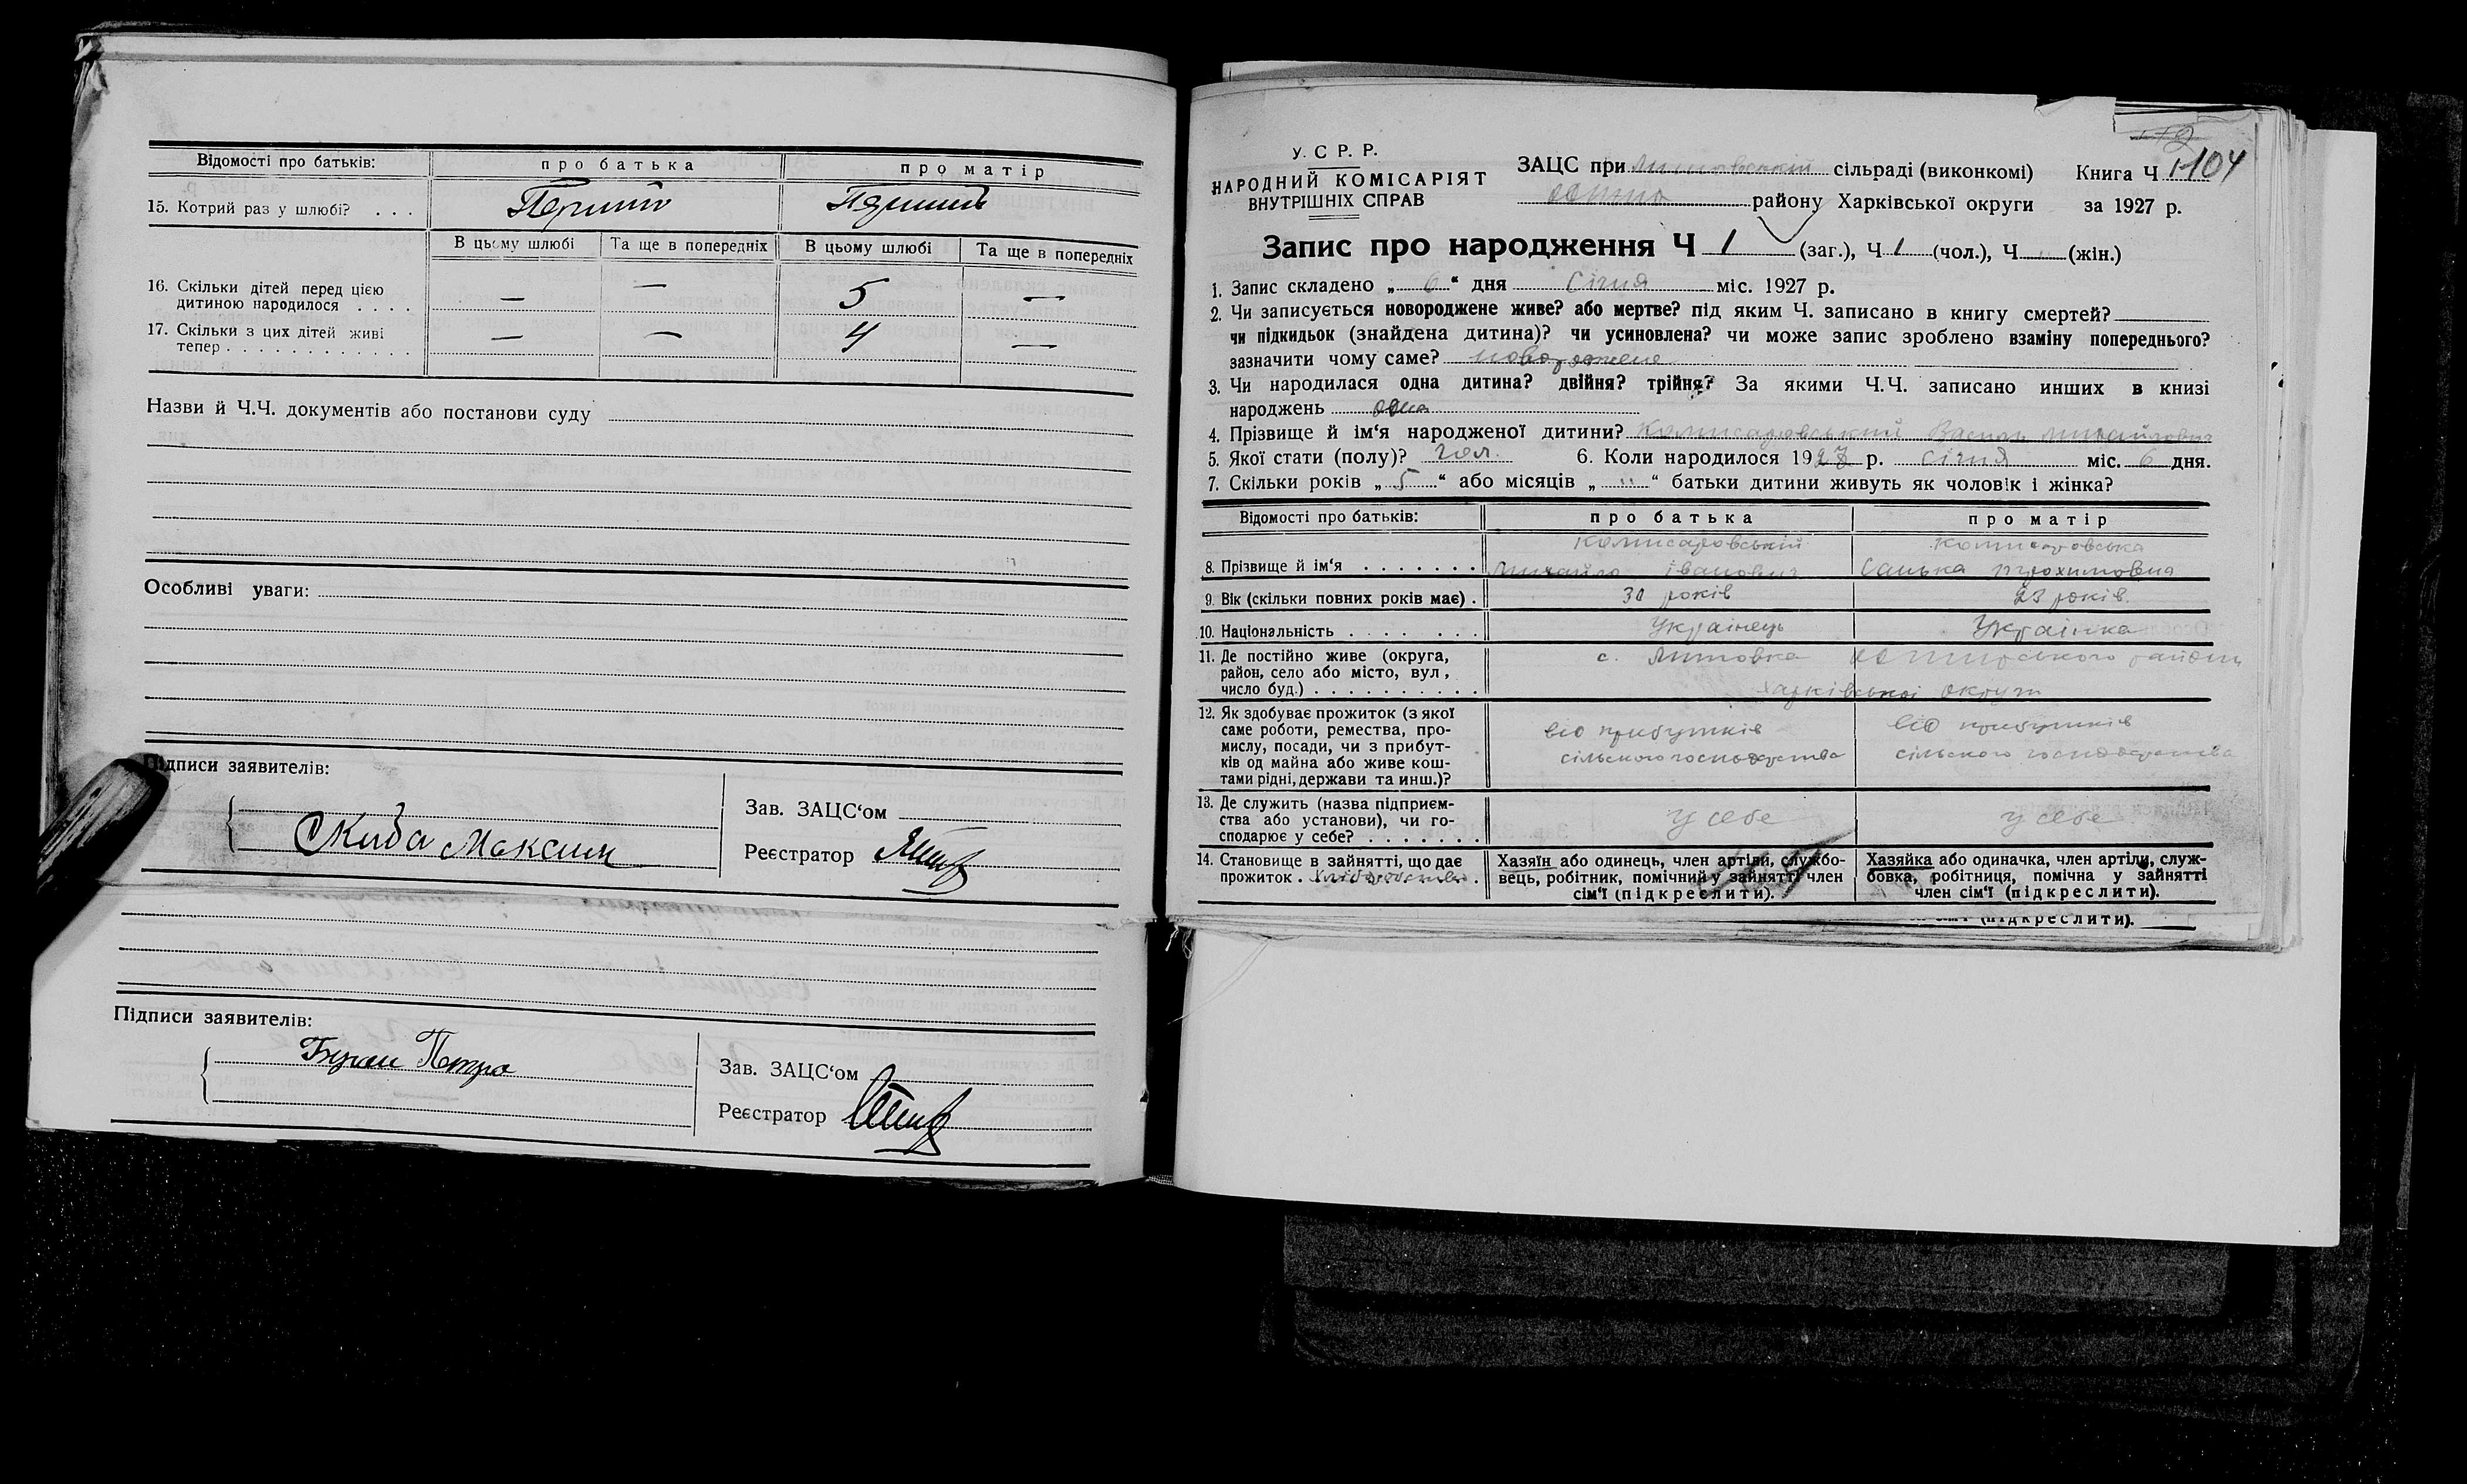 Відомості про батьків: про батька про матір
15. Котрий раз у шлюбі? . . . Перший
В цьому шлюбі Та ще в попередніх В цьому шлюбі Та ще в попередніх
16. Скільки дітей перед цією
дитиною народилося . . . . — — 5 —
17. Скільки з цих дітей живі
тепер . . . . . . . . . . . . — — 4 —
Назви й Ч.Ч. документів або постанови суду
Особливі уваги:
Підписи заявителів:
Скиба Максим
Зав. ЗАЦС‘ом
Реєстратор
Підписи заявителів:
Петро
Зав. ЗАЦС‘ом
Реєстратор
У. С Р. Р.
НАРОДНИЙ КОМІСАРІЯТ
ВНУТРІШНІХ СПРАВ
ЗАЦС при сільраді (виконкомі) Книга Ч 1-104
району Харківської округи за 1927 р.
Запис про народження Ч 1 (заг.), Ч 1 (чол.), Ч „ (жін.)
1. Запис складено „ 6 “ дня Січня міс. 1927 р.
2. Чи записується новороджене живе? або мертве? під яким Ч. записано в книгу смертей?
чи підкидьок (знайдена дитина)? чи усиновлена? чи може запис зроблено взаміну попереднього?
зазначити чому саме? новорожене
3. Чи народилася одна дитина? двійня? трійня? За якими Ч.Ч. записано инших в книзі
народжень одна
4. Прізвище й ім‘я народженої дитини? Комисаровський Василь Михайлович
5. Якої стати (полу)? чол. 6. Коли народилося 1927 р. Січня міс. 6 дня.
7. Скільки років „ 5 “ або місяців „ „ “ батьки дитини живуть як чоловік і жінка?
Відомості про батьків: про батька про матір
Комисаровський Комисаровська
8. Прізвище й ім‘я . . . . . . . Михайло Іванович Санька Трохимовна
9. Вік (скільки повних років має) . 30 років 23 років.
10. Національність . . . . . . . Українець Українка
11. Де постійно живе (округа, с. Липовка району
район, село або місто, вул,
число буд.) . . . . . . . . . . Харківської округи
12. Як здобуває прожиток (з якої
саме роботи, ремества, про- від прибутків від прибутків
мислу, посади, чи з прибут- сільского господарства сільского господарства
ків од майна або живе кош-
тами рідні, держави та инш.)?
13. Де служить (назва підприєм-
ства або установи), чи го- у себе у себе
сподарює у себе? . . . . . . .
14. Становище в зайнятті, що дає Хазяїн або одинець, член артіли, службо- Хазяйка або одиначка, член артіли, служ-
прожиток . Хліборобство . вець, робітник, помічний у зайнятті член бовка, робітниця, помічна у зайнятті
сім‘ї (підкреслити). член сім‘ї (підкреслити).
сім‘ї (підкреслити).